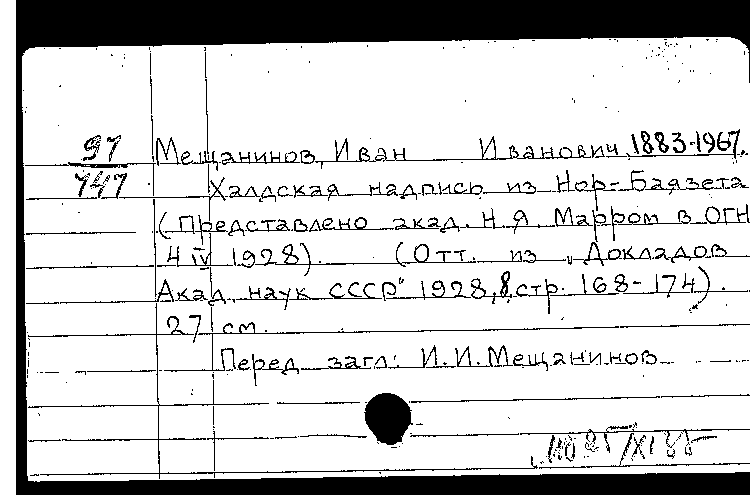 97
747
Мещанинов, Иван Иванович, 1883-1967.
Халдская надпись из Нор-Баязета
(Представлено акад. Н. Я. Марром в ОГН
4 IV 1928). (Отт. из „Докладов
Акад. наук СССР" 1928, 8, стр. 168-174).
27 см.
Перед загл: И. И. Мещанинов